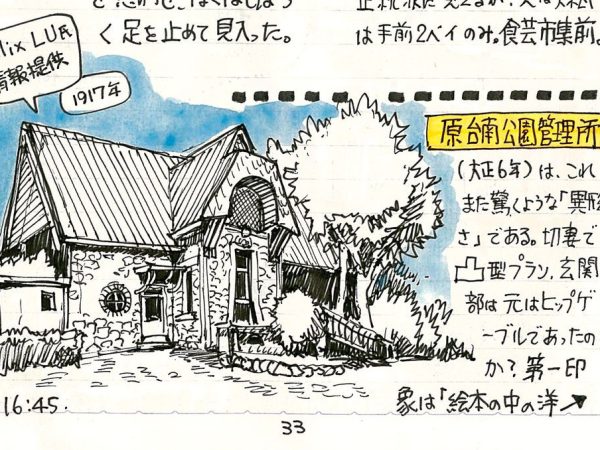 く足を止めて見入った。
は手前2ベイのみ。食芸市集前。
lix LU氏
情報提供
1917年
原台南公園管理所
(大正6年)は、これ
また驚くような「異形
さ」である。切妻で
凸型プラン、玄関
部は元はヒップゲ
ーブルであったの
か?第一印
象は「絵本の中の洋
16:45.
33